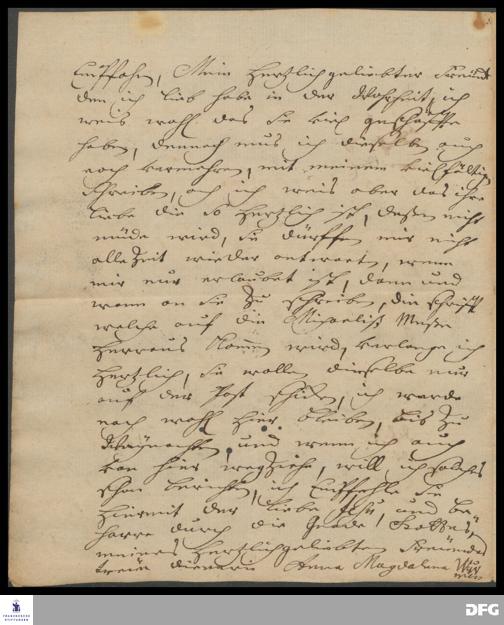 Empfohen, Mein hertzlich geliebter Freündt
den ich lieb habe in der Wahrheit, ich
weis wohl das Sie viel geschäffte
haben, dennoch mus ich dieselben auch
noch vermehren, mit meinem vielfältigen
schreiben, ach ich weis aber das ihre
liebe die so hertzlich ist, dessen nicht
müde wird, Sie dürffen mir nicht
alle Zeit wieder antworten, wenn
mir nur erlaubet ist, dann und
wann an Sie zu schreiben, die schrifft
welche auf die Michaelis Messe
herraus komen wird, verlange ich
hertzlich, Sie wollen dieselbe nur
auf der Post schicken, ich werde
noch wohl hier bleiben, bis zu
Weÿnachten, und wenn ich auch
von hier wegziehe, will ich solches
schon berichten, ich Empfehle Sie
hiermit der liebe Jesu, und be
harre durch die Gnade Gottes,
meines hertzlichgeliebten Freündes
treüe dienerin Anna Magdalena